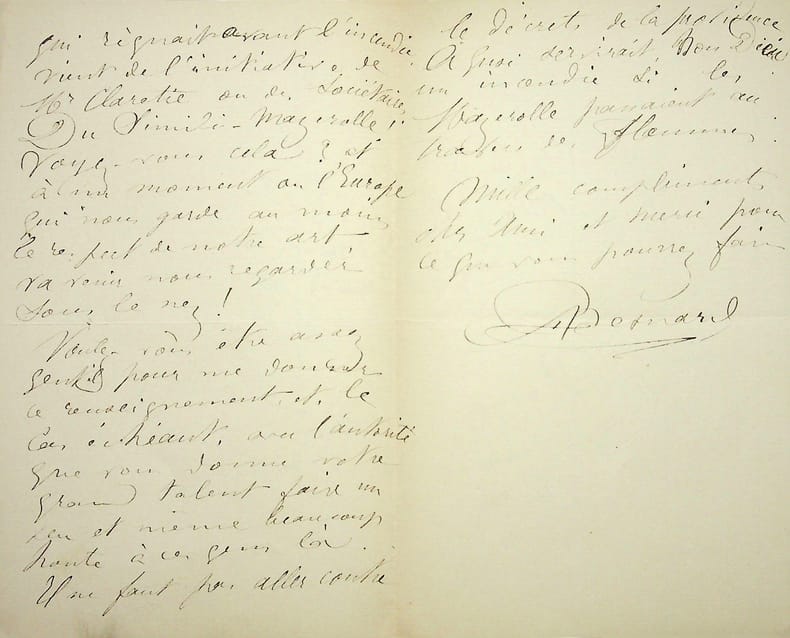 qui régnait avant l'incendie
vient de l'initiative de
Mr Claretie ou des Sociétaires
Du Simili-Mazerolle !
Voyez-vous cela ? et
à un moment où l'Europe
qui nous garde au moins
le respect de notre art
va venir nous regarder
sous le nez !
Voulez-vous être assez
gentil pour me donner
ce renseignement, et, le
cas échéant, avec l'autorité
que vous donne votre
grand talent faire un
peu et même beaucoup
honte à ces gens là.
Il ne faut pas aller contre
le décrets de la providence
À quoi servirait, Bon Dieu
un incendie si les
Mazerolle passaient au
travers des flammes.
Mille compliments
cher Ami et merci pour
ce que vous pourrez faire
Besnard